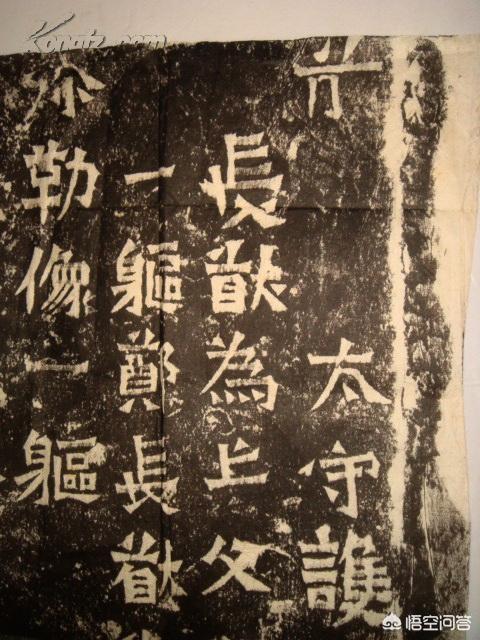 太守護
長猷為亡父
一軀鄭長猷
弥勒像一軀
悟空问答